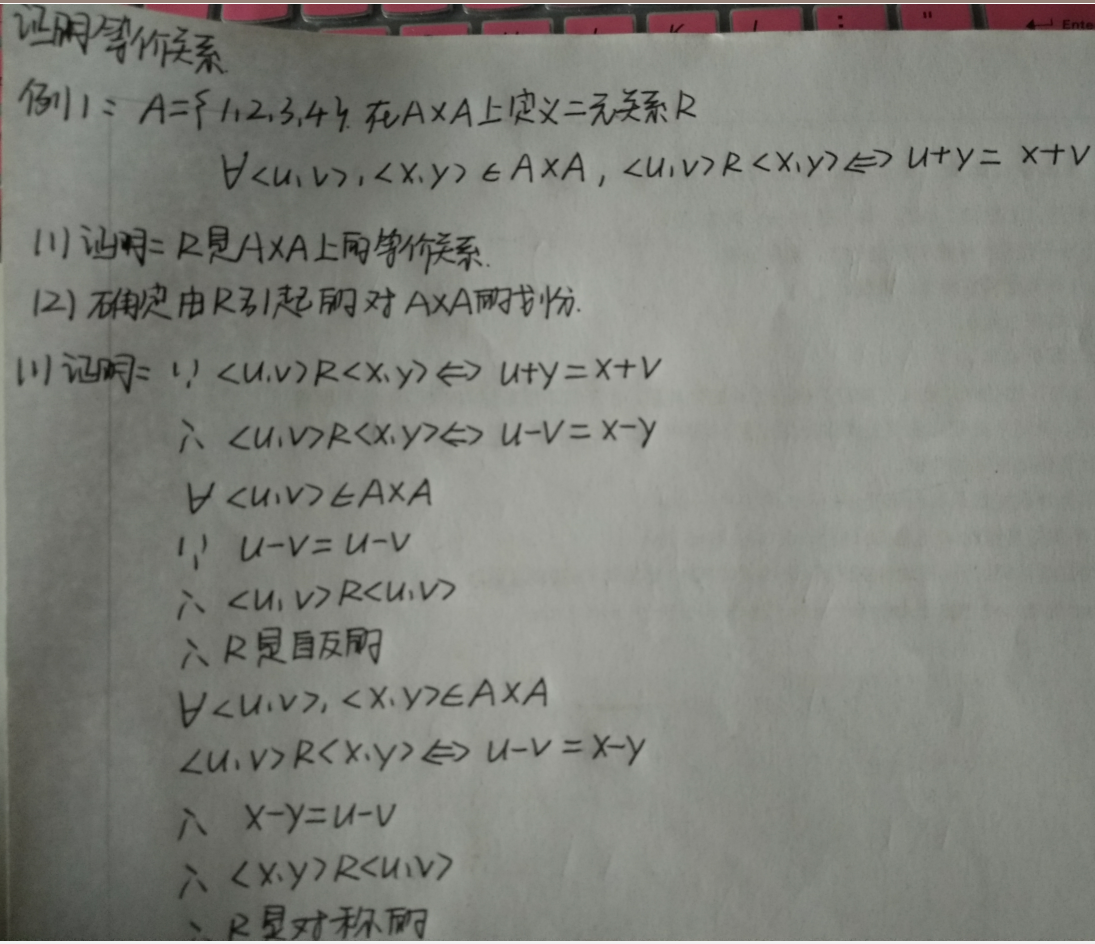 证明等价关系
例1: A={1,2,3,4}. 在A×A上定义二元关系R
∀<u,v>,<x,y>∈A×A, <u,v>R<x,y>⇔u+y=x+v
(1) 证明: R是A×A上的等价关系.
(2) 确定由R引起的对A×A的划分.
(1) 证明: ∵ <u,v>R<x,y>⇔u+y=x+v
∴ <u,v>R<x,y>⇔u-v=x-y
∀<u,v>∈A×A
∵ u-v=u-v
∴ <u,v>R<u,v>
∴ R是自反的
∀<u,v>,<x,y>∈A×A
<u,v>R<x,y>⇔u-v=x-y
∴ x-y=u-v
∴ <x,y>R<u,v>
∴ R是对称的
Enter